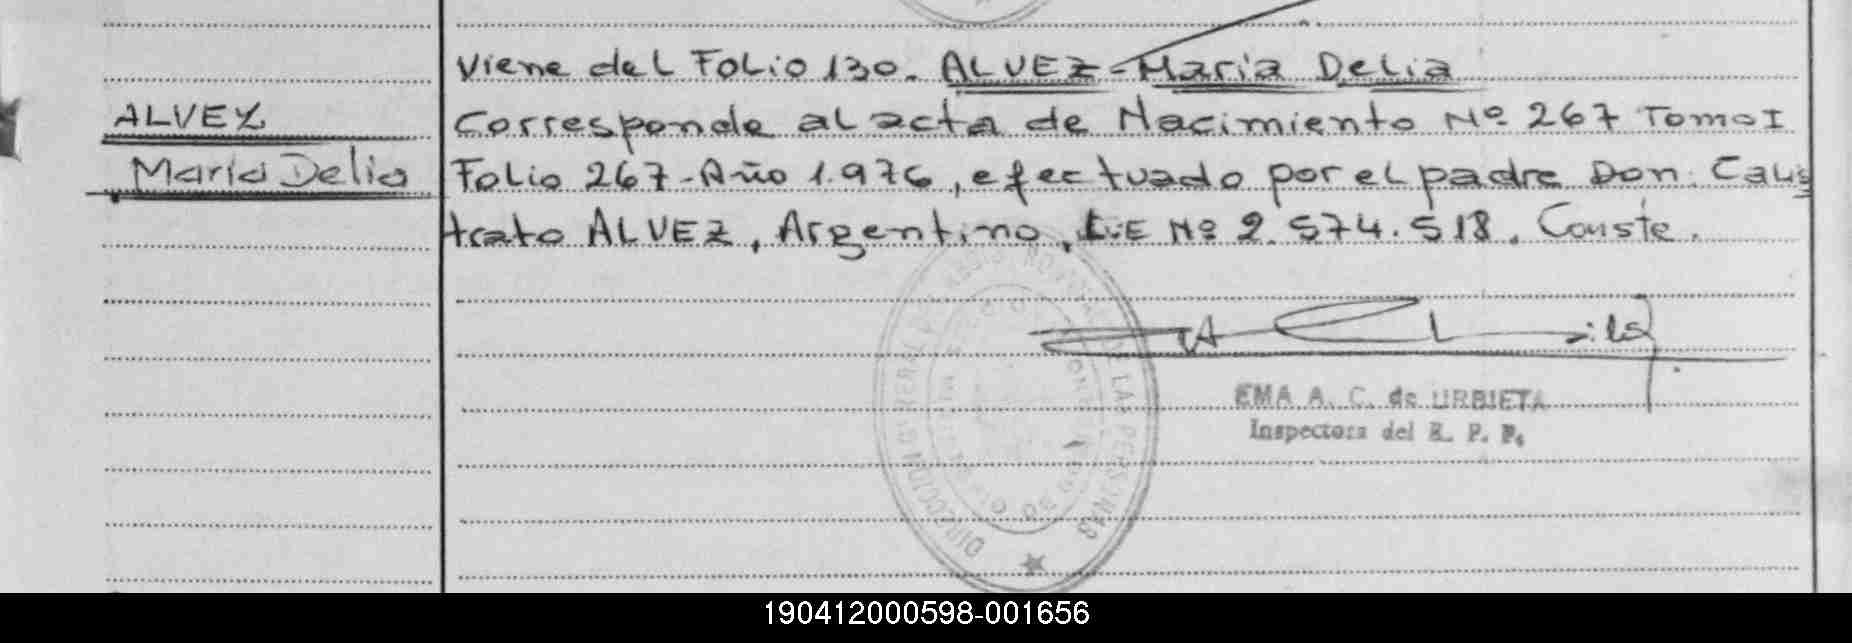 Viene del Folio 130. ALVEZ-Maria Delia
ALVEZ
Corresponde al acta de Nacimiento Nº 267 Tomo I
Maria Delia
Folio 267-Año 1.976, efectuado por el padre Don. Calis
trato ALVEZ, Argentino, L.E Nº 2.574.518. Conste.
DIRECCION GENERAL DEL REGISTRO DE LAS PERSONAS
EMA A. C. de URBIETA
Inspectora del R. P. P.
190412000598-001656